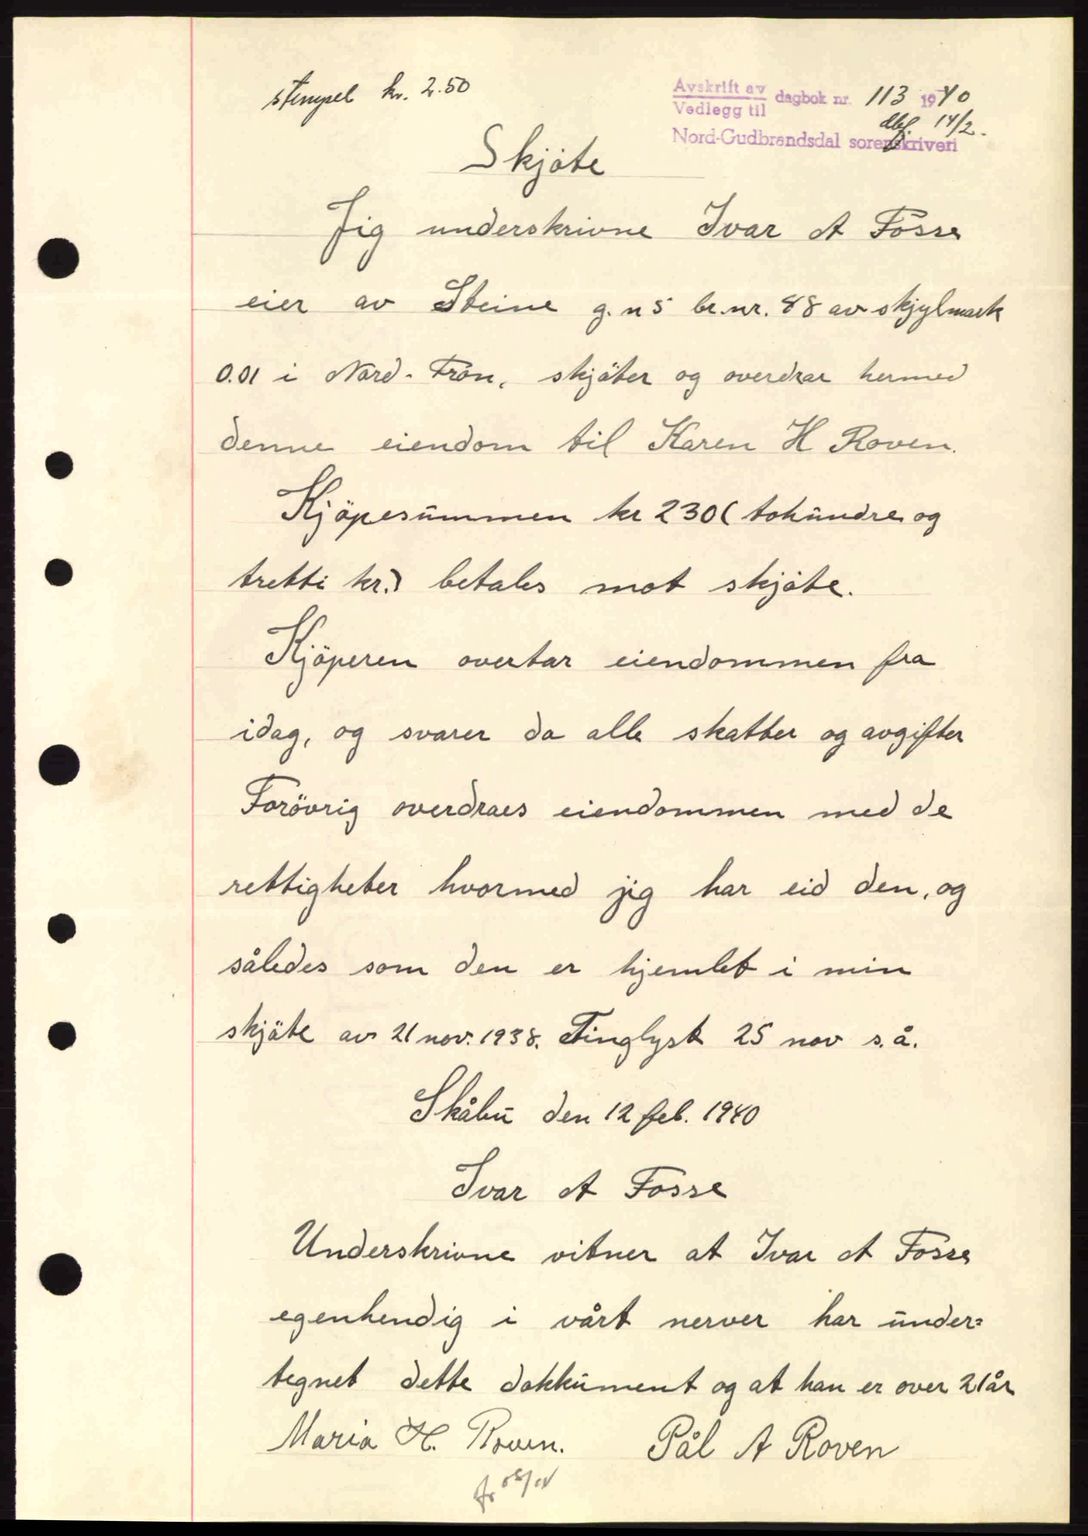 stempel kr. 2.50
Avskrift av
Vedlegg til dagbok nr. 113 1940
14/2.
Nord-Gudbrandsdal sorenskriveri
Skjöte
Jig underskrivne Ivar A Fosse
eier av Steine g.n 5 br.nr. 88 av skjylmark
0.01 i Nord-Fron, skjöter og overdrar hermed
denne eiendom til Karen H Roven.
Kjöpesummen kr 230 (tohundre og
tretti kr.) betales mot skjöte.
Kjöperen overtar eiendommen fra
idag, og svarer da alle skatter og avgifter
Forövrig overdraes eiendommen med de
rettigheter hvormed jig har eid den, og
således som den er hjemlet i min
skjöte av 21 nov. 1938. Tinglyst 25 nov s.å.
Skåbu den 12 feb. 1940
Ivar A Fosse
Underskrivne vitner at Ivar A Fosse
egenhendig i vårt nerver har under=
tegnet dette dokkument og at han er over 21 år
Maria H. Roven. Pål A Roven